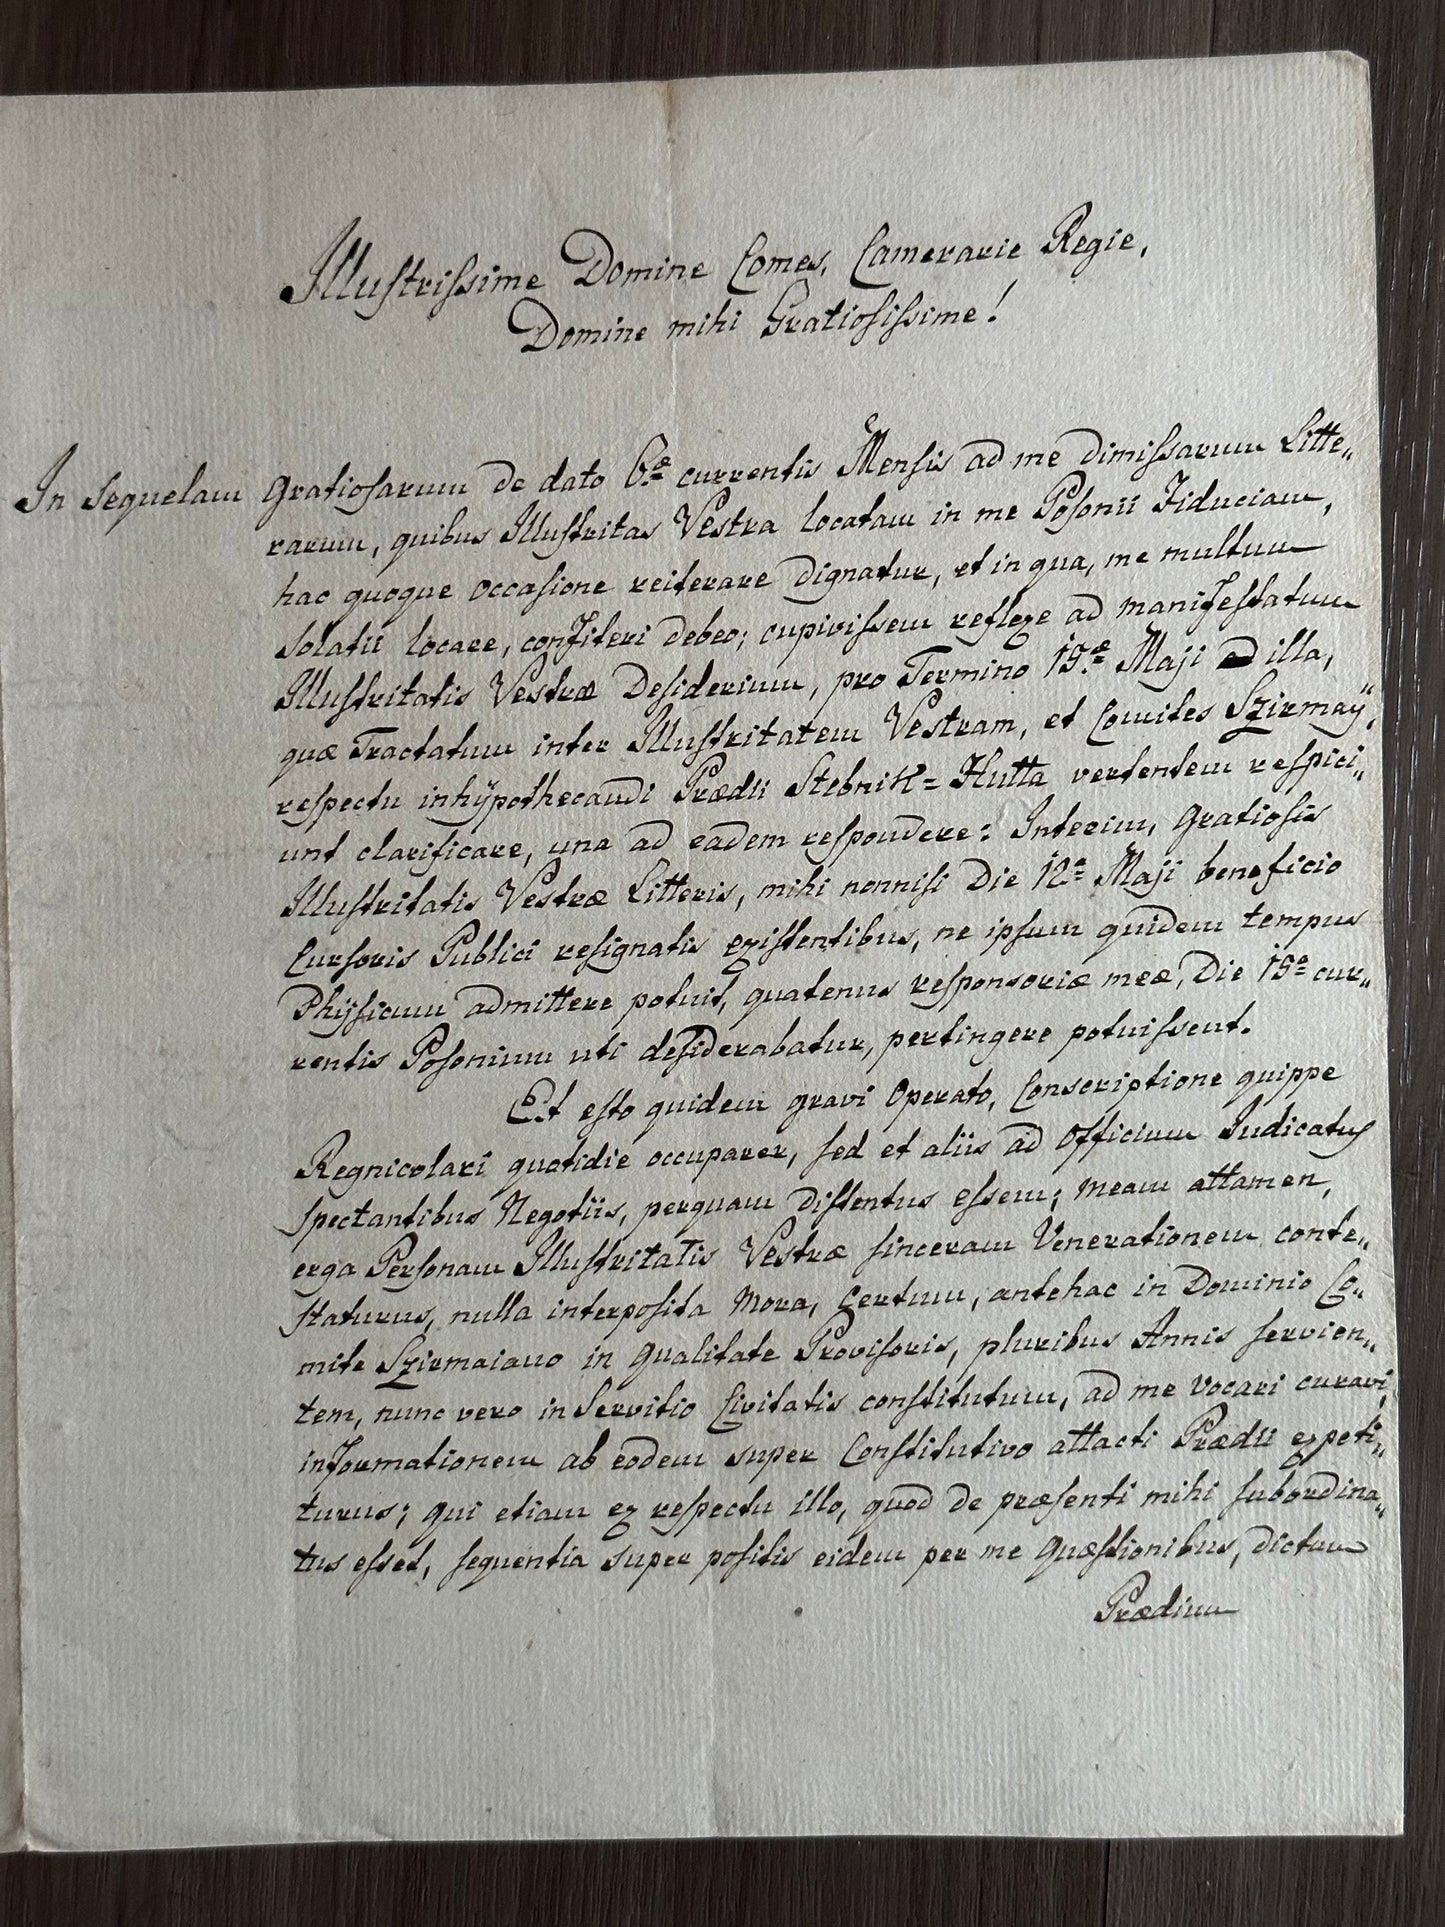 Illustrissime Domine Comes, Camerarie Regie,
Domine mihi Gratiosissime!
In sequelam gratiosarum de dato 6æ currentis Mensis ad me dimissarum Litte„
rarum, quibus Illustritas Vestra locatam in me Posonii Fiduciam,
hac quoque occasione reiterare dignatur, et in qua, me multum
solatii locare, confiteri debeo; cupivissem reflexe ad manifestatum
Illustritatis Vestræ Desiderium, pro Termino 15æ Maji ad illa,
quæ Tractatum inter Illustritatem Vestram, et Comites Szirmay,
respectu inhypothecandi Prædii Stebnik=Hutta vertentem respici„
unt clarificare, una ad eadem respondere: Interim, gratiosis
Illustritatis Vestræ Litteris, mihi nonnisi Die 12a Maji beneficio
Cursoris Publici resignatis existentibus, ne ipsum quidem tempus
Physicum admittere potuit, quatenus responsoriæ meæ, Die 15a cur„
rentis Posonium uti desiderabatur, pertingere potuissent.
Et esto quidem gravi Operato, Conscriptione quippe
Regnicolari quotidie occuparer, sed et aliis ad Officium Judicatus
spectantibus Negotiis, perquam distentus essem; meam attamen,
erga Personam Illustritatis Vestræ sinceram Venerationem conte„
staturus, nulla interposita mora, certum, antehac in Dominio Co„
mite Szirmaiano in qualitate Provisoris, pluribus Annis servien„
tem, nunc vero in Servitio Civitatis constitutum, ad me vocari curavi,
informationem ab eodem super Constitutivo attacti Prædii expeti„
turus; qui etiam ex respectu illo, quod de præsenti mihi subordina„
tus esset, sequentia super positis eidem per me quæstionibus, dictam
Prædium